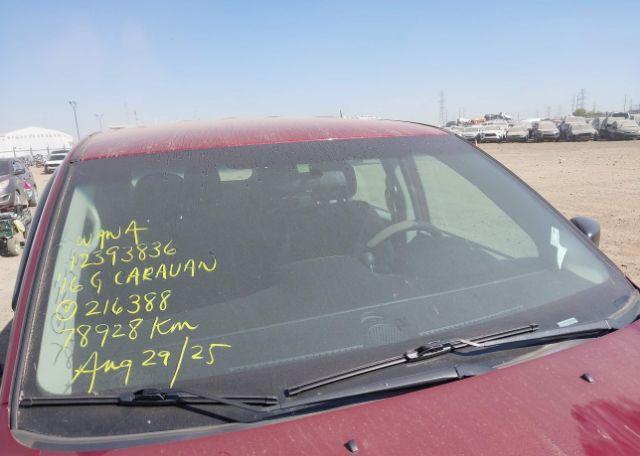 WAWA
12393836
'16 G CARAVAN
216388
78928 Km
Aug 29/25